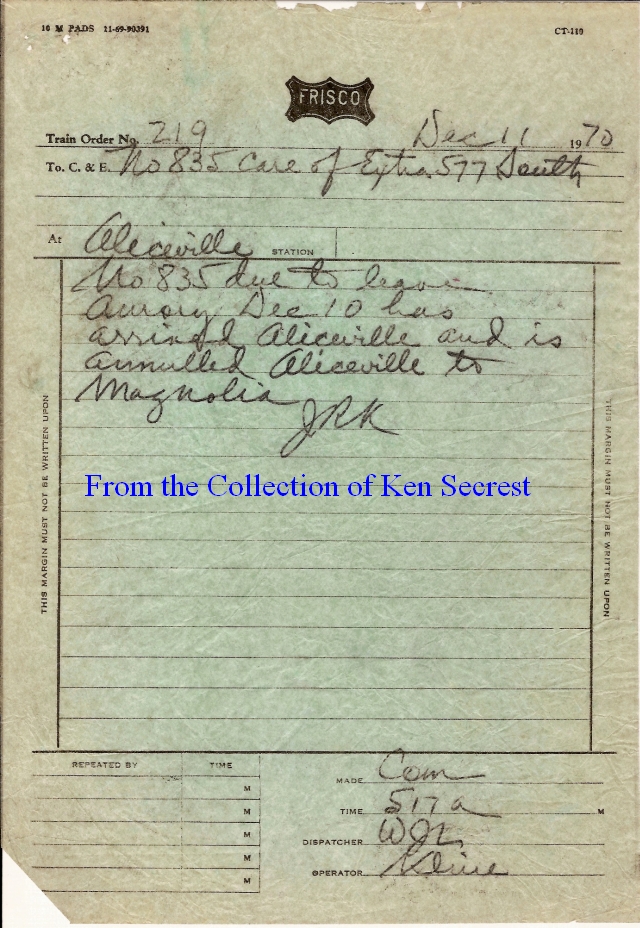 10 M PADS 11-69-90391 CT-110
FRISCO
Train Order No. 219 Dec 11 1970
To. C. & E. No 835 care of Extra 577 South
At Aliceville STATION
No 835 due to leave
Amory Dec 10 has
arrived Aliceville and is
annulled Aliceville to
Magnolia
JRK
THIS MARGIN MUST NOT BE WRITTEN UPON
THIS MARGIN MUST NOT BE WRITTEN UPON
From the Collection of Ken Secrest
REPEATED BY TIME
M
M
M
M
M
MADE Com
TIME 517 a M
DISPATCHER
OPERATOR